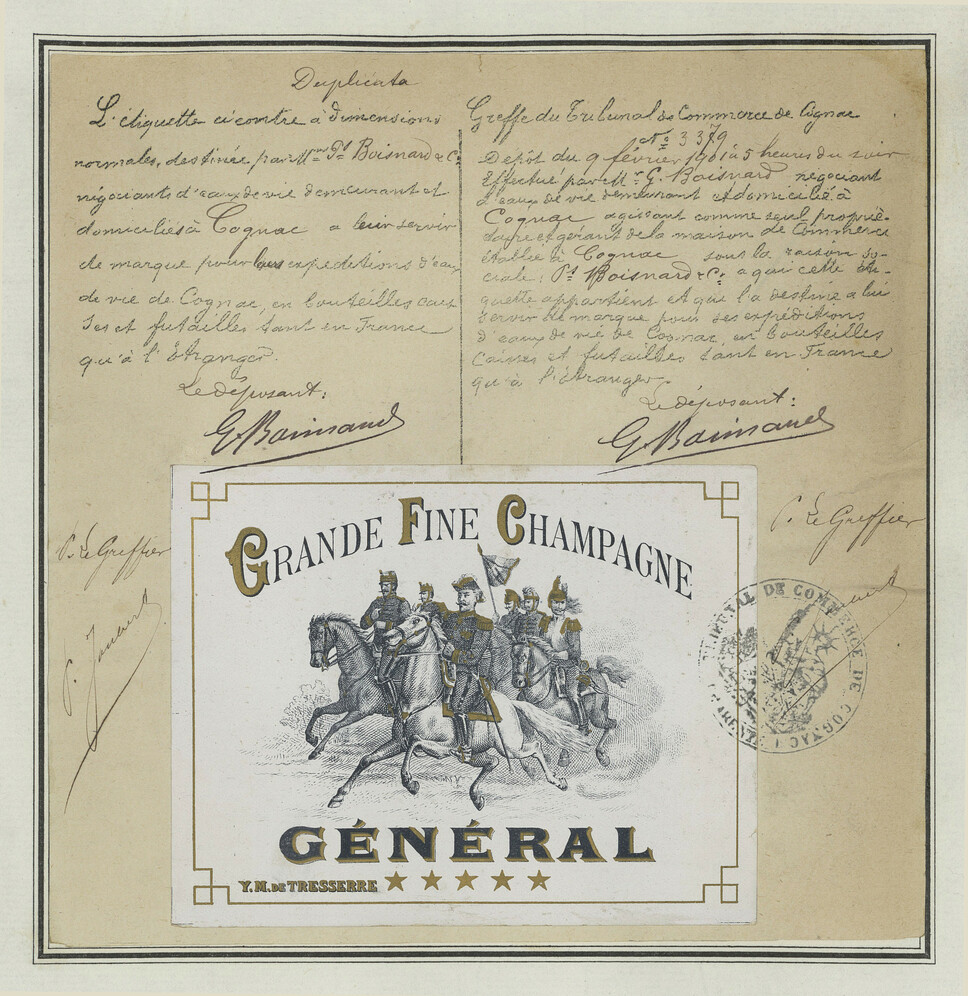 Duplicata
L'étiquette ci contre à dimensions
normales, destinée par Mrs Pl Boisnard & Cie
négociants d'eaux de vie demeurant et
domiciliés à Cognac a leur servir
de marque pour les expéditions d'eaux
de vie de Cognac, en bouteilles cais
ses et futailles tant en France
qu'à l'étranger.
Le déposant:
G. Boisnard
Greffe du Tribunal de Commerce de Cognac
No 3379
Dépôt du 9 février 1901 à 5 heures du soir
Effectué par Mr G. Boisnard négociant
d'eaux de vie demeurant et domicilié à
Cognac agissant comme seul proprié-
taire et gérant de la maison de Commerce
établie à Cognac sous la raison so-
ciale: Pl Boisnard & Cie a qui cette éti-
quette appartient et qui l'a destine a lui
servir de marque pour ses expéditions
d'eaux de vie de Cognac, en bouteilles
Caisses et futailles tant en France
qu'à l'étranger
Le déposant:
G. Boisnard
P. Le Greffier
P. Le Greffier
GRANDE FINE CHAMPAGNE
GÉNÉRAL
Y. M. DE TRESSERRE
TRIBUNAL DE COMMERCE DE COGNAC